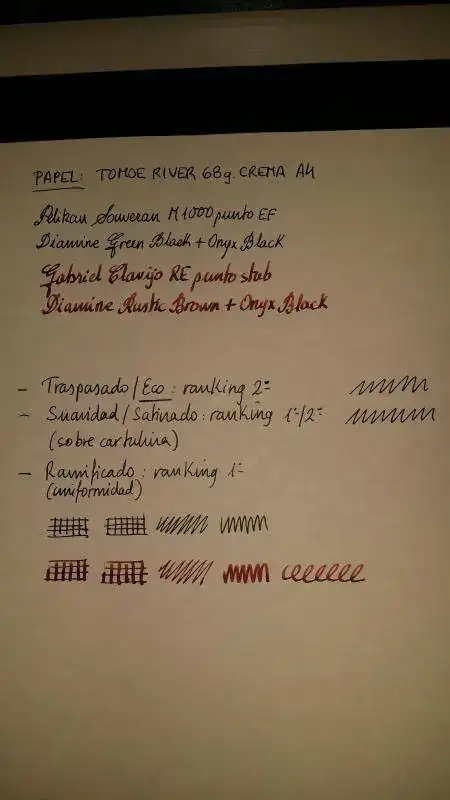 PAPEL: TOMOE RIVER 68g. CREMA A4
Pelikan Souveran M1000 punto EF
Diamine Green Black + Onyx Black
Gabriel Clavijo RE punto stub
Diamine Rustic Brown + Onyx Black
- Traspasado/Eco: ranking 2º
- Suavidad/Satinado: ranking 1º/2º
(sobre cartulina)
- Ramificado: ranking 1º
(uniformidad)